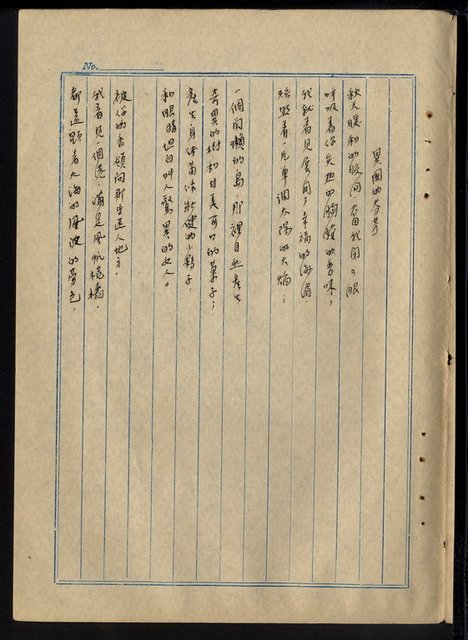 No.
異國的芬芳
秋天暖和的晚間，當我閉了眼
呼吸着你炙熱的胸膛的香味，
我就看見展開了幸福的海湄，
炫照着一片單調太陽的火焰；
一個閑懶的島，那裡自然產生
奇異的樹和甘美可口的菓子；
產生身體苗條壯健的小夥子，
和眼睛坦白叫人驚異的女人。
被你的香領向那些迷人地方，
我看見一個港，滿是風帆桅檣，
都還顯着大海的風波的勞色，